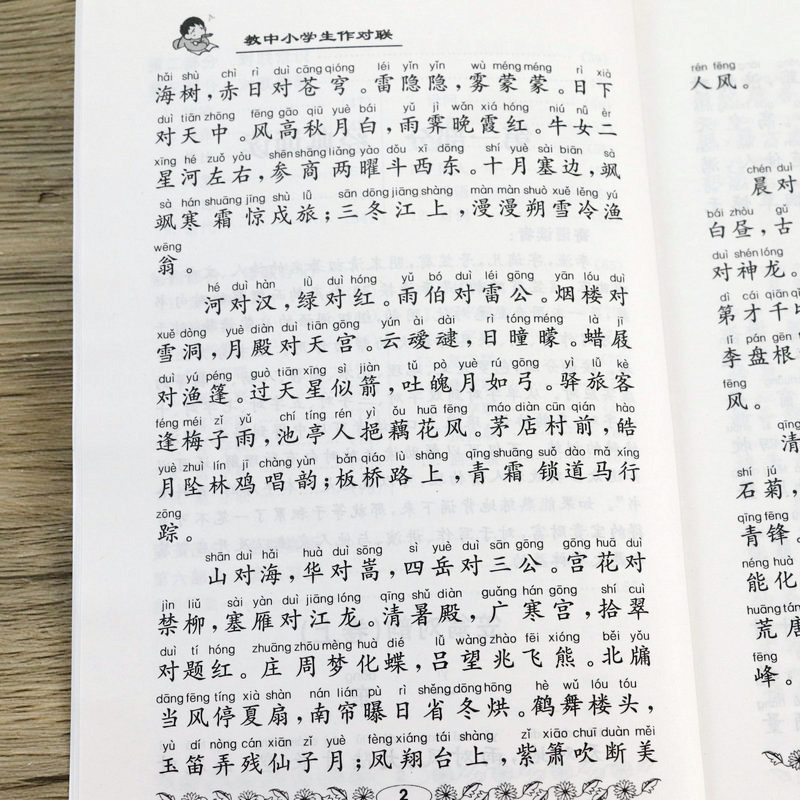 教中小学生作对联
hǎi shù chì rì duì cāng qióng léi yǐn yǐn wù méng méng rì xià
海树，赤日对苍穹。雷隐隐，雾蒙蒙。日下
duì tiān zhōng fēng gāo qiū yuè bái yǔ jì wǎn xiá hóng niú nǚ èr
对天中。风高秋月白，雨霁晚霞红。牛女二
xīng hé zuǒ yòu shēn shāng liǎng yào dǒu xī dōng shí yuè sài biān sà
星河左右，参商两曜斗西东。十月塞边，飒
sà hán shuāng jīng shù lǚ sān dōng jiāng shàng màn màn shuò xuě lěng yú
飒寒霜惊戍旅；三冬江上，漫漫朔雪冷渔
wēng
翁。
hé duì hàn lǜ duì hóng yǔ bó duì léi gōng yān lóu duì
河对汉，绿对红。雨伯对雷公。烟楼对
xuě dòng yuè diàn duì tiān gōng yún ài dài rì tóng méng là jī
雪洞，月殿对天宫。云叆叇，日曈曚。蜡屐
duì yú péng guò tiān xīng sì jiàn tǔ pò yuè rú gōng yì lǚ kè
对渔篷。过天星似箭，吐魄月如弓。驿旅客
féng méi zǐ yǔ chí tíng rén yì ǒu huā fēng máo diàn cūn qián hào
逢梅子雨，池亭人挹藕花风。茅店村前，皓
yuè zhuì lín jī chàng yùn bǎn qiáo lù shàng qīng shuāng suǒ dào mǎ xíng
月坠林鸡唱韵；板桥路上，青霜锁道马行
zōng
踪。
shān duì hǎi huà duì sōng sì yuè duì sān gōng gōng huā duì
山对海，华对嵩，四岳对三公。宫花对
jìn liǔ sài yàn duì jiāng lóng qīng shǔ diàn guǎng hán gōng shí cuì
禁柳，塞雁对江龙。清暑殿，广寒宫，拾翠
duì tí hóng zhuāng zhōu mèng huà dié lǚ wàng zhào fēi xióng běi yǒu
对题红。庄周梦化蝶，吕望兆飞熊。北牖
dāng fēng tíng xià shàn nán lián pù rì shěng dōng hōng hè wǔ lóu tóu
当风停夏扇，南帘曝日省冬烘。鹤舞楼头，
yù dí nòng cán xiān zǐ yuè fèng xiáng tái shàng zǐ xiāo chuī duàn měi
玉笛弄残仙子月；凤翔台上，紫箫吹断美
2
rén fēng
人风。
chén duì
晨对
bái zhòu gǔ
白昼，古
duì shén lóng
对神龙。
dì cái qiān
第才千
lǐ pán gēn
李盘根
fēng
风。
清
shí jú
石菊，
qīng fēng
青锋。
néng huà
能化
huāng táng
荒唐
fēng
峰。